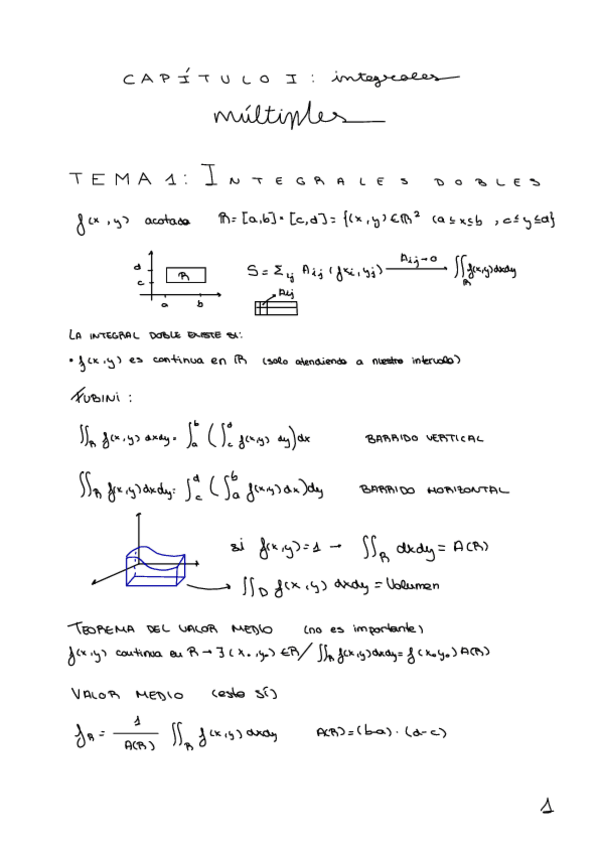 CAPÍTULO I: integrales
múltiples
TEMA 1: INTEGRALES DOBLES
f(x,y) acotada R=[a,b]·[c,d]={(x,y)∈ℝ² (a≤x≤b, c≤y≤d}
d
c
R
a b
S=Σij Aij (fxi,yj) Aij→0 ∬R f(x,y)dxdy
Aij
LA INTEGRAL DOBLE EXISTE SI:
• f(x,y) es continua en R (solo atendiendo a nuestro intervalo)
FUBINI:
∬R f(x,y) dxdy = ∫a^b (∫c^d f(x,y) dy)dx BARRIDO VERTICAL
∬R f(x,y)dxdy = ∫c^d (∫a^b f(x,y)dx)dy BARRIDO HORIZONTAL
si f(x,y)=1 → ∬R dxdy = A(R)
→ ∬D f(x,y) dxdy = Volumen
TEOREMA DEL VALOR MEDIO (no es importante)
f(x,y) continua en R → ∃(x₀,y₀)∈R/ ∬R f(x,y)dxdy=f(x₀y₀)A(R)
VALOR MEDIO (este sí)
fR = 1/A(R) ∬R f(x,y)dxdy A(R)=(b-a)·(d-c)
1